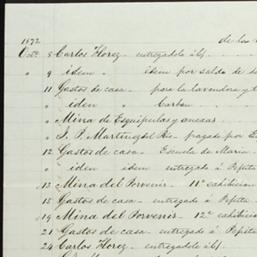 de los
1872
Oct. 8 Carlos Florez - entregadole
" 9 idem - idem por saldo de
11 Gastos de casa - para la lavandera y
" iden Carbon
" Mina de Esquipulas y anexas -
" J. P. Martinez del Rio - pagado por
12 Gastos de casa - Escuela de Maria
" iden iden entregado á Pepita
" 13 Mina del Porvenir - 11ª exhibicion
15 Gastos de casa - entregado á Pepita
" 19 Mina del Porvenir - 12ª exhibicion
" 21 Gastos de casa - entregado á Pepita
24 Carlos Florez - entregadole